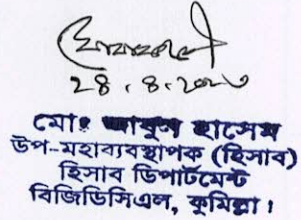 ২৪.৪.২০২৩
মোঃ আবুল হাসেম
উপ-মহাব্যবস্থাপক (হিসাব)
হিসাব ডিপার্টমেন্ট
বিজিডিসিএল, কুমিল্লা।